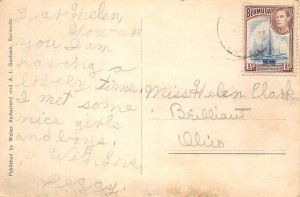 Dear Helen,
How are
you I am
having a
lovely time.
I met some
nice girls
and boys.
With love,
Peggy.
BERMUDA
POSTAGE
Miss Helen Clark
Brilliant
Ohio
Published by Walter Rutherford and A. L. Gorham, Bermuda